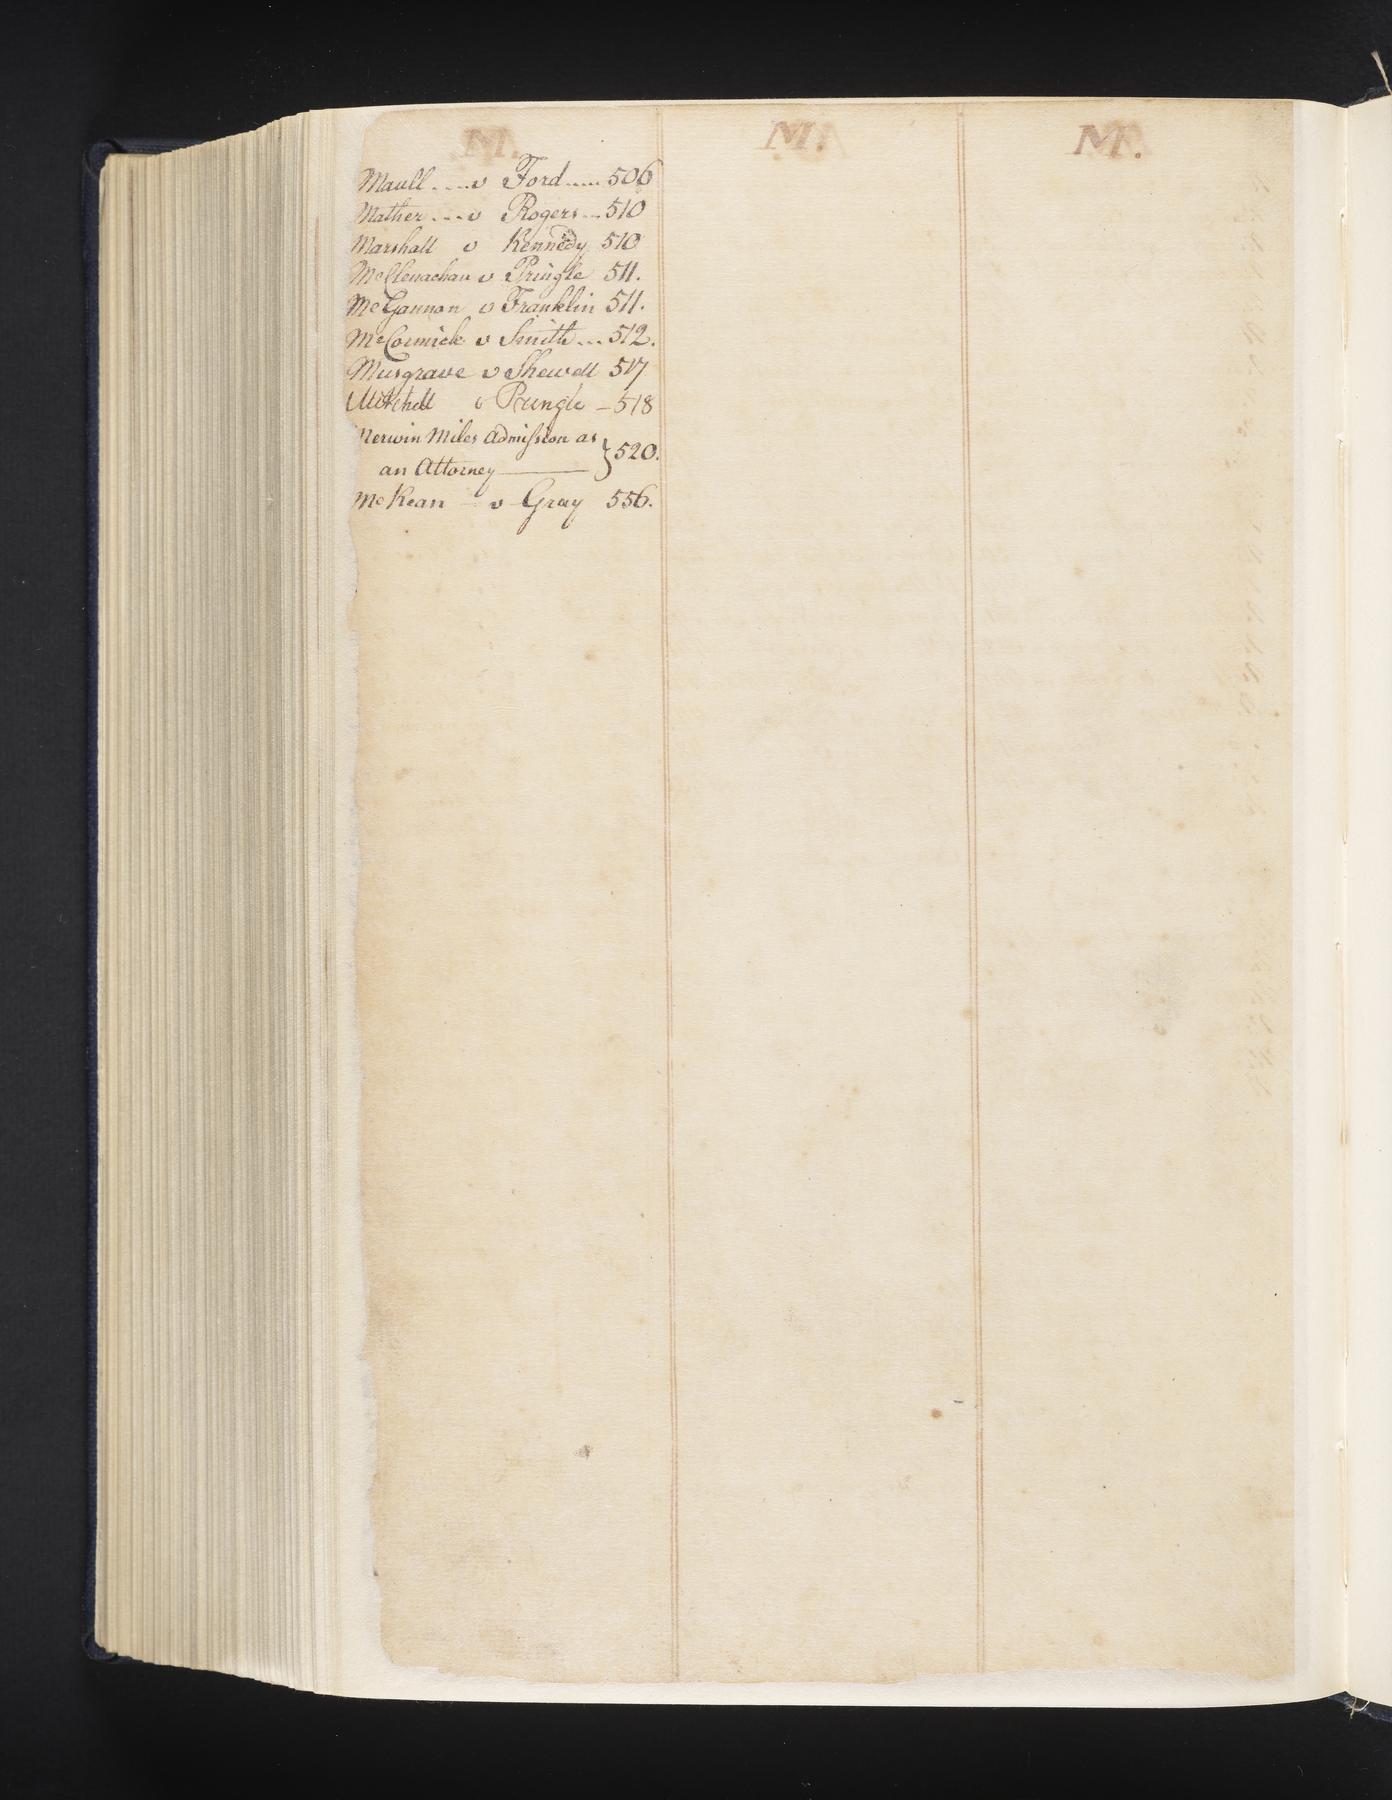 M. M. M.
Maull....v Ford.....506
Mather...v Rogers...510
Marshall v Kennedy 510
McClenachan v Pringle 511.
McGannon v Franklin 511.
McCormick v Smith...512.
Musgrave v Shewell 517
Mitchell v Pringle – 518
Merwin Miles Admiſsion as
an Attorney } 520.
McKean – v Gray 556.